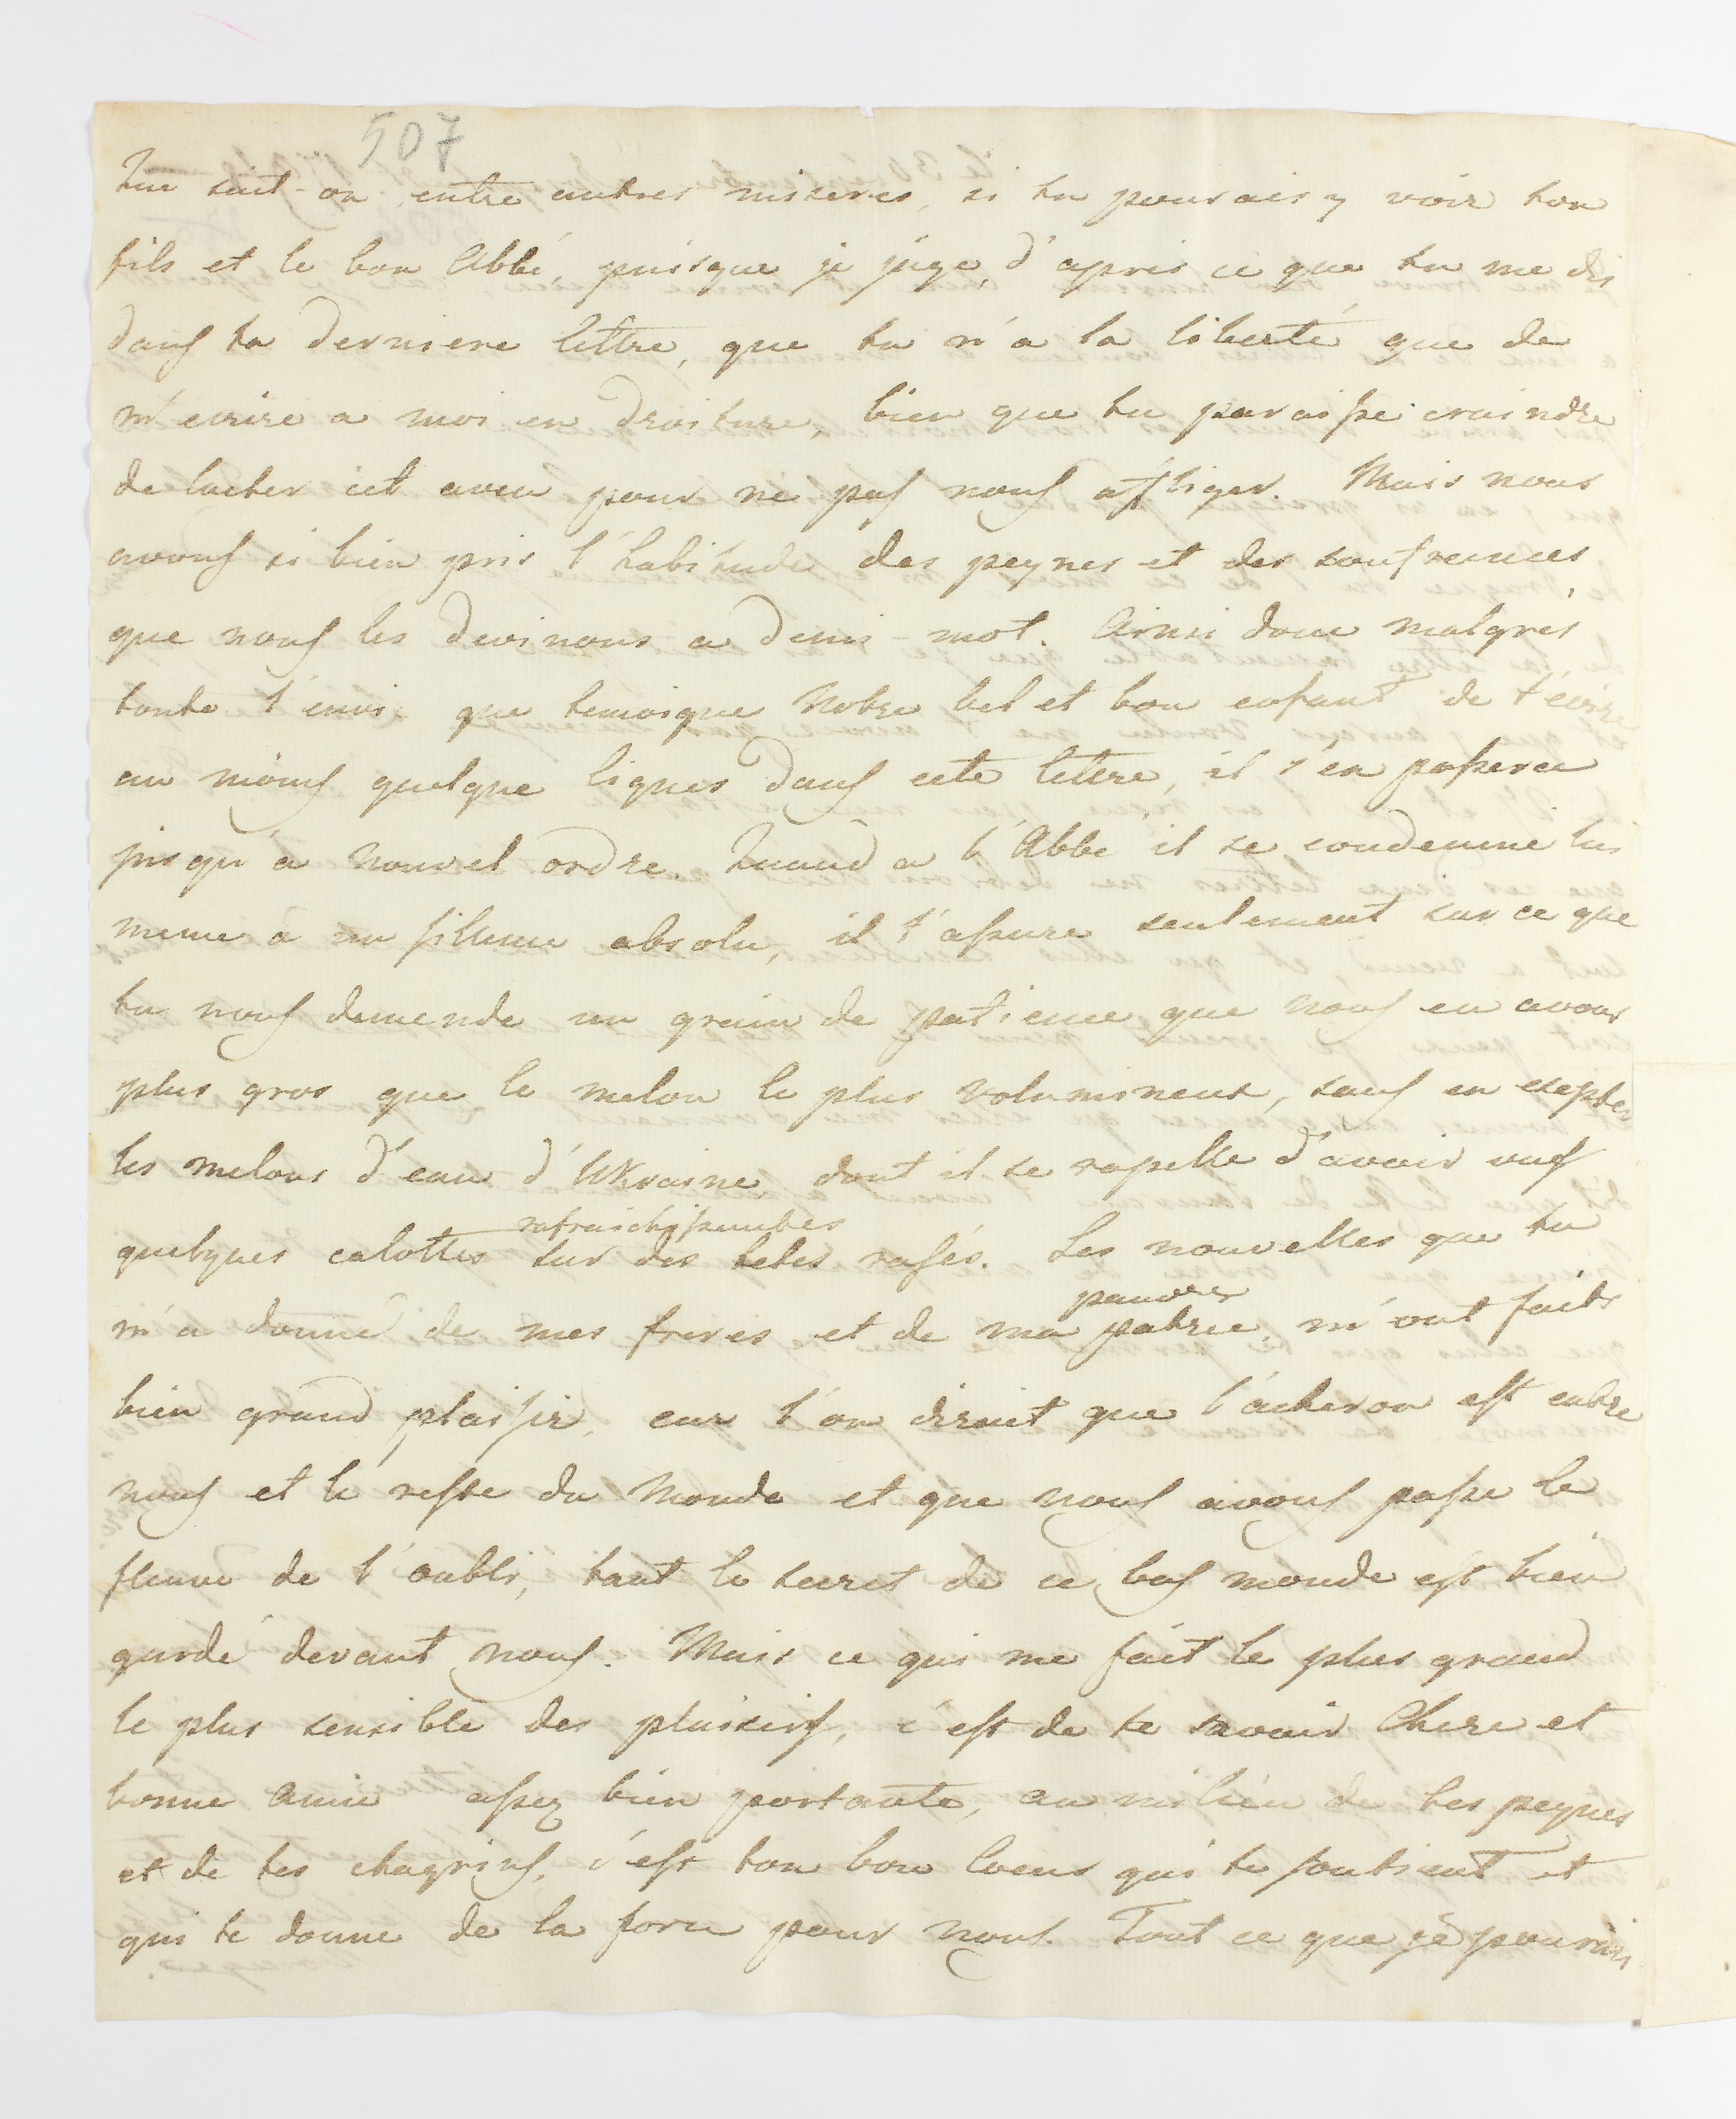 507
Que sait-on entre autres miseres, si tu pourais y voir ton
fils et le bon Abbé, puisque je juge, d'apres ce que tu me dis
dans ta derniere lettre, que tu n'a la liberté que de
m'ecrire a moi en droiture, bien que tu paraisse craindre
de lacher cet aveu pour ne pas nous afliger. Mais nous
avons si bien pris l'habitude des peynes et des soufrances
que nous les devinons a demi-mot. Ainsi donc malgrés
toute l'envi que temoigne Notre bel et bon enfant de t'ecrire
au moins quelque lignes dans cete lettre, il s'en passera
jusqu'a nouvel ordre. Quand a l'Abbé il se condemne lui
meme a un sillence absolu, il t'assure seulement sur ce que
tu nous demende un grain de patience que nous en avons
plus gros que le melon le plus volumineux, sauf en exepter
les melons d'eau d'Ukraine dont il se rapelle d'avoir vus
quelques calottes rafraichissantes sur des tetes rasés. Les nouvelles que tu
m'a donné de mes freres et de ma pauvre patrie, m'ont faits
bien grand plaisir, car l'on diroit que l'acheron est entre
nous et le reste du Monde et que nous avons passe le
fleuve de l'oubli, tant le secret de ce bas monde est bien
gardé devant nous. Mais ce qui me fait le plus grand
le plus sensible des plaisirs, c'est de te savoir Chere et
bonne Amie assez bien portante, au milieu de tes peynes
et de tes chagrins, c'est ton bon Coeur qui te soutient et
qui te donne de la force pour nous. Tout ce que je pourais